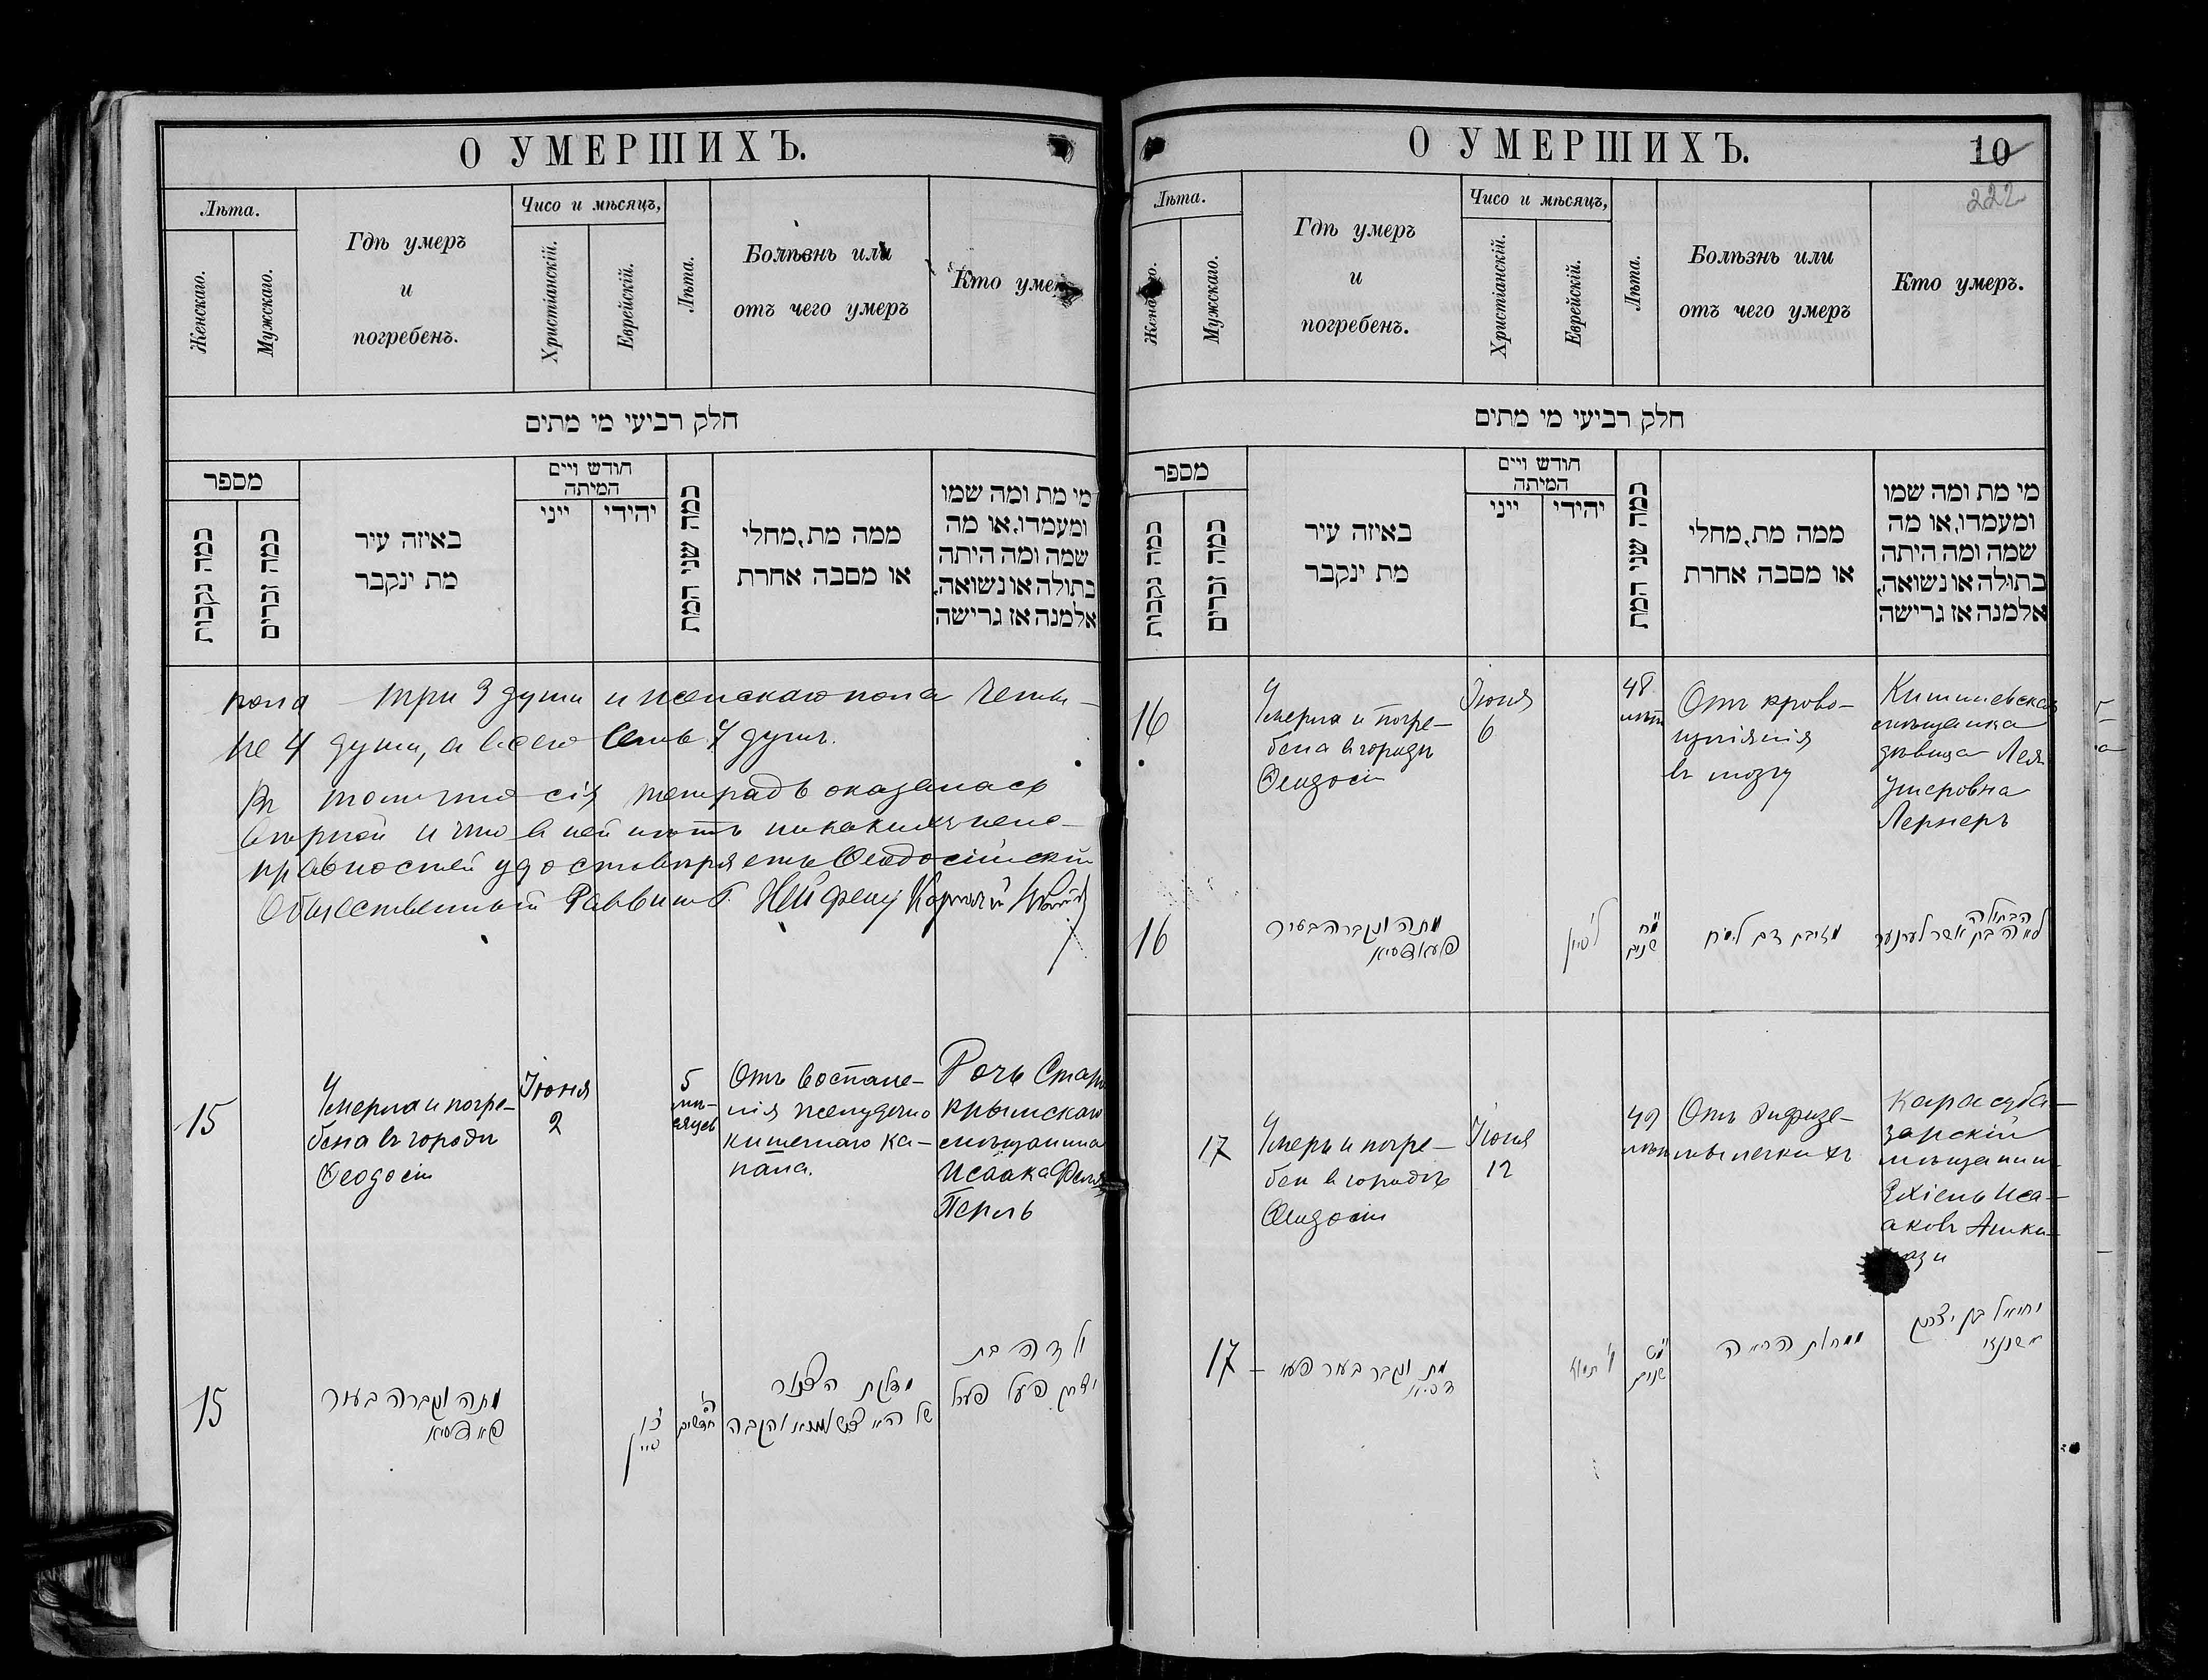 О УМЕРШИХЪ.
Лѣта.
Женскаго.
Мужскаго.
Гдѣ умеръ
и
погребенъ.
Чисо и мѣсяцъ,
Христіанскій.
Еврейскій.
Лѣта.
Болѣзнь или
отъ чего умеръ
Кто умеръ
חלק רביעי מי מתים
מספר
כמה נקבות
כמה זכרים
באיזה עיר
מת ינקבר
חודש ויים
המיתה
ייני
יהידי
כמה שני המת
ממה מת, מחלי
או מסבה אחרת
מי מת ומה שמו
ומעמדו, או מה
שמה ומה היתה
בתולה או נשואה,
אלמנה אז גרישה
пола три 3 души и женскаго пола четы-
ре 4 души, а всего семь 7 душъ.
Въ томъ что сія тетрадь оказалась
вѣрной и что в ней нѣтъ никакихъ неис-
правностей удостовѣряетъ Ѳеодосійскій
Общественный Раввинъ
15
Умерла и погре-
бена въ городѣ
Ѳеодосіи
Іюня
2
5
мѣ-
сяцевъ
Отъ воспале-
нія желудочно
кишечнаго ка-
нала.
Дочь Старо
крымскаго
мѣщанина
Исаака
Перль
15
מתה ונקברה בעיר
פאדאסיא
סיון
ה'
חדשים
דלקת הצנור
ילדה בת
יצחק
О УМЕРШИХЪ.
10
222
Лѣта.
Женскаго.
Мужскаго.
Гдѣ умеръ
и
погребенъ.
Чисо и мѣсяцъ,
Христіанскій.
Еврейскій.
Лѣта.
Болѣзнь или
отъ чего умеръ
Кто умеръ.
חלק רביעי מי מתים
מספר
כמה נקבות
כמה זכרים
באיזה עיר
מת ינקבר
חודש ויים
המיתה
ייני
יהידי
כמה שני המת
ממה מת, מחלי
או מסבה אחרת
מי מת ומה שמו
ומעמדו, או מה
שמה ומה היתה
בתולה או נשואה,
אלמנה אז גרישה
16
Умерла и погре-
бена въ городѣ
Ѳеодосіи
Іюня
6
48
лѣтъ
Отъ крово-
изліянія
въ мозгу
Кишиневская
мѣщанка
дѣвица Лея
Ушеровна
Лернеръ
16
מתה ונקברה בעיר
פעאדאסיא
סיון
מ״ח
שנים
מזיבת דם
הבתולה
לאה בת אשר לערנער
17
Умеръ и погре-
бен въ городѣ
Ѳеодосіи
Іюня
12
49
лѣтъ
Отъ Эмфизе-
мы легкихъ
Карасуба-
зарскій
мѣщанинъ
Ехіель Иса-
аковъ Ашке-
нази
17
מת ונקבר בעיר פעא
דסיא
תמוז
מ״ט
שנים
ממחלת הריאה
יחיאל בן יצחק
אשכנזי